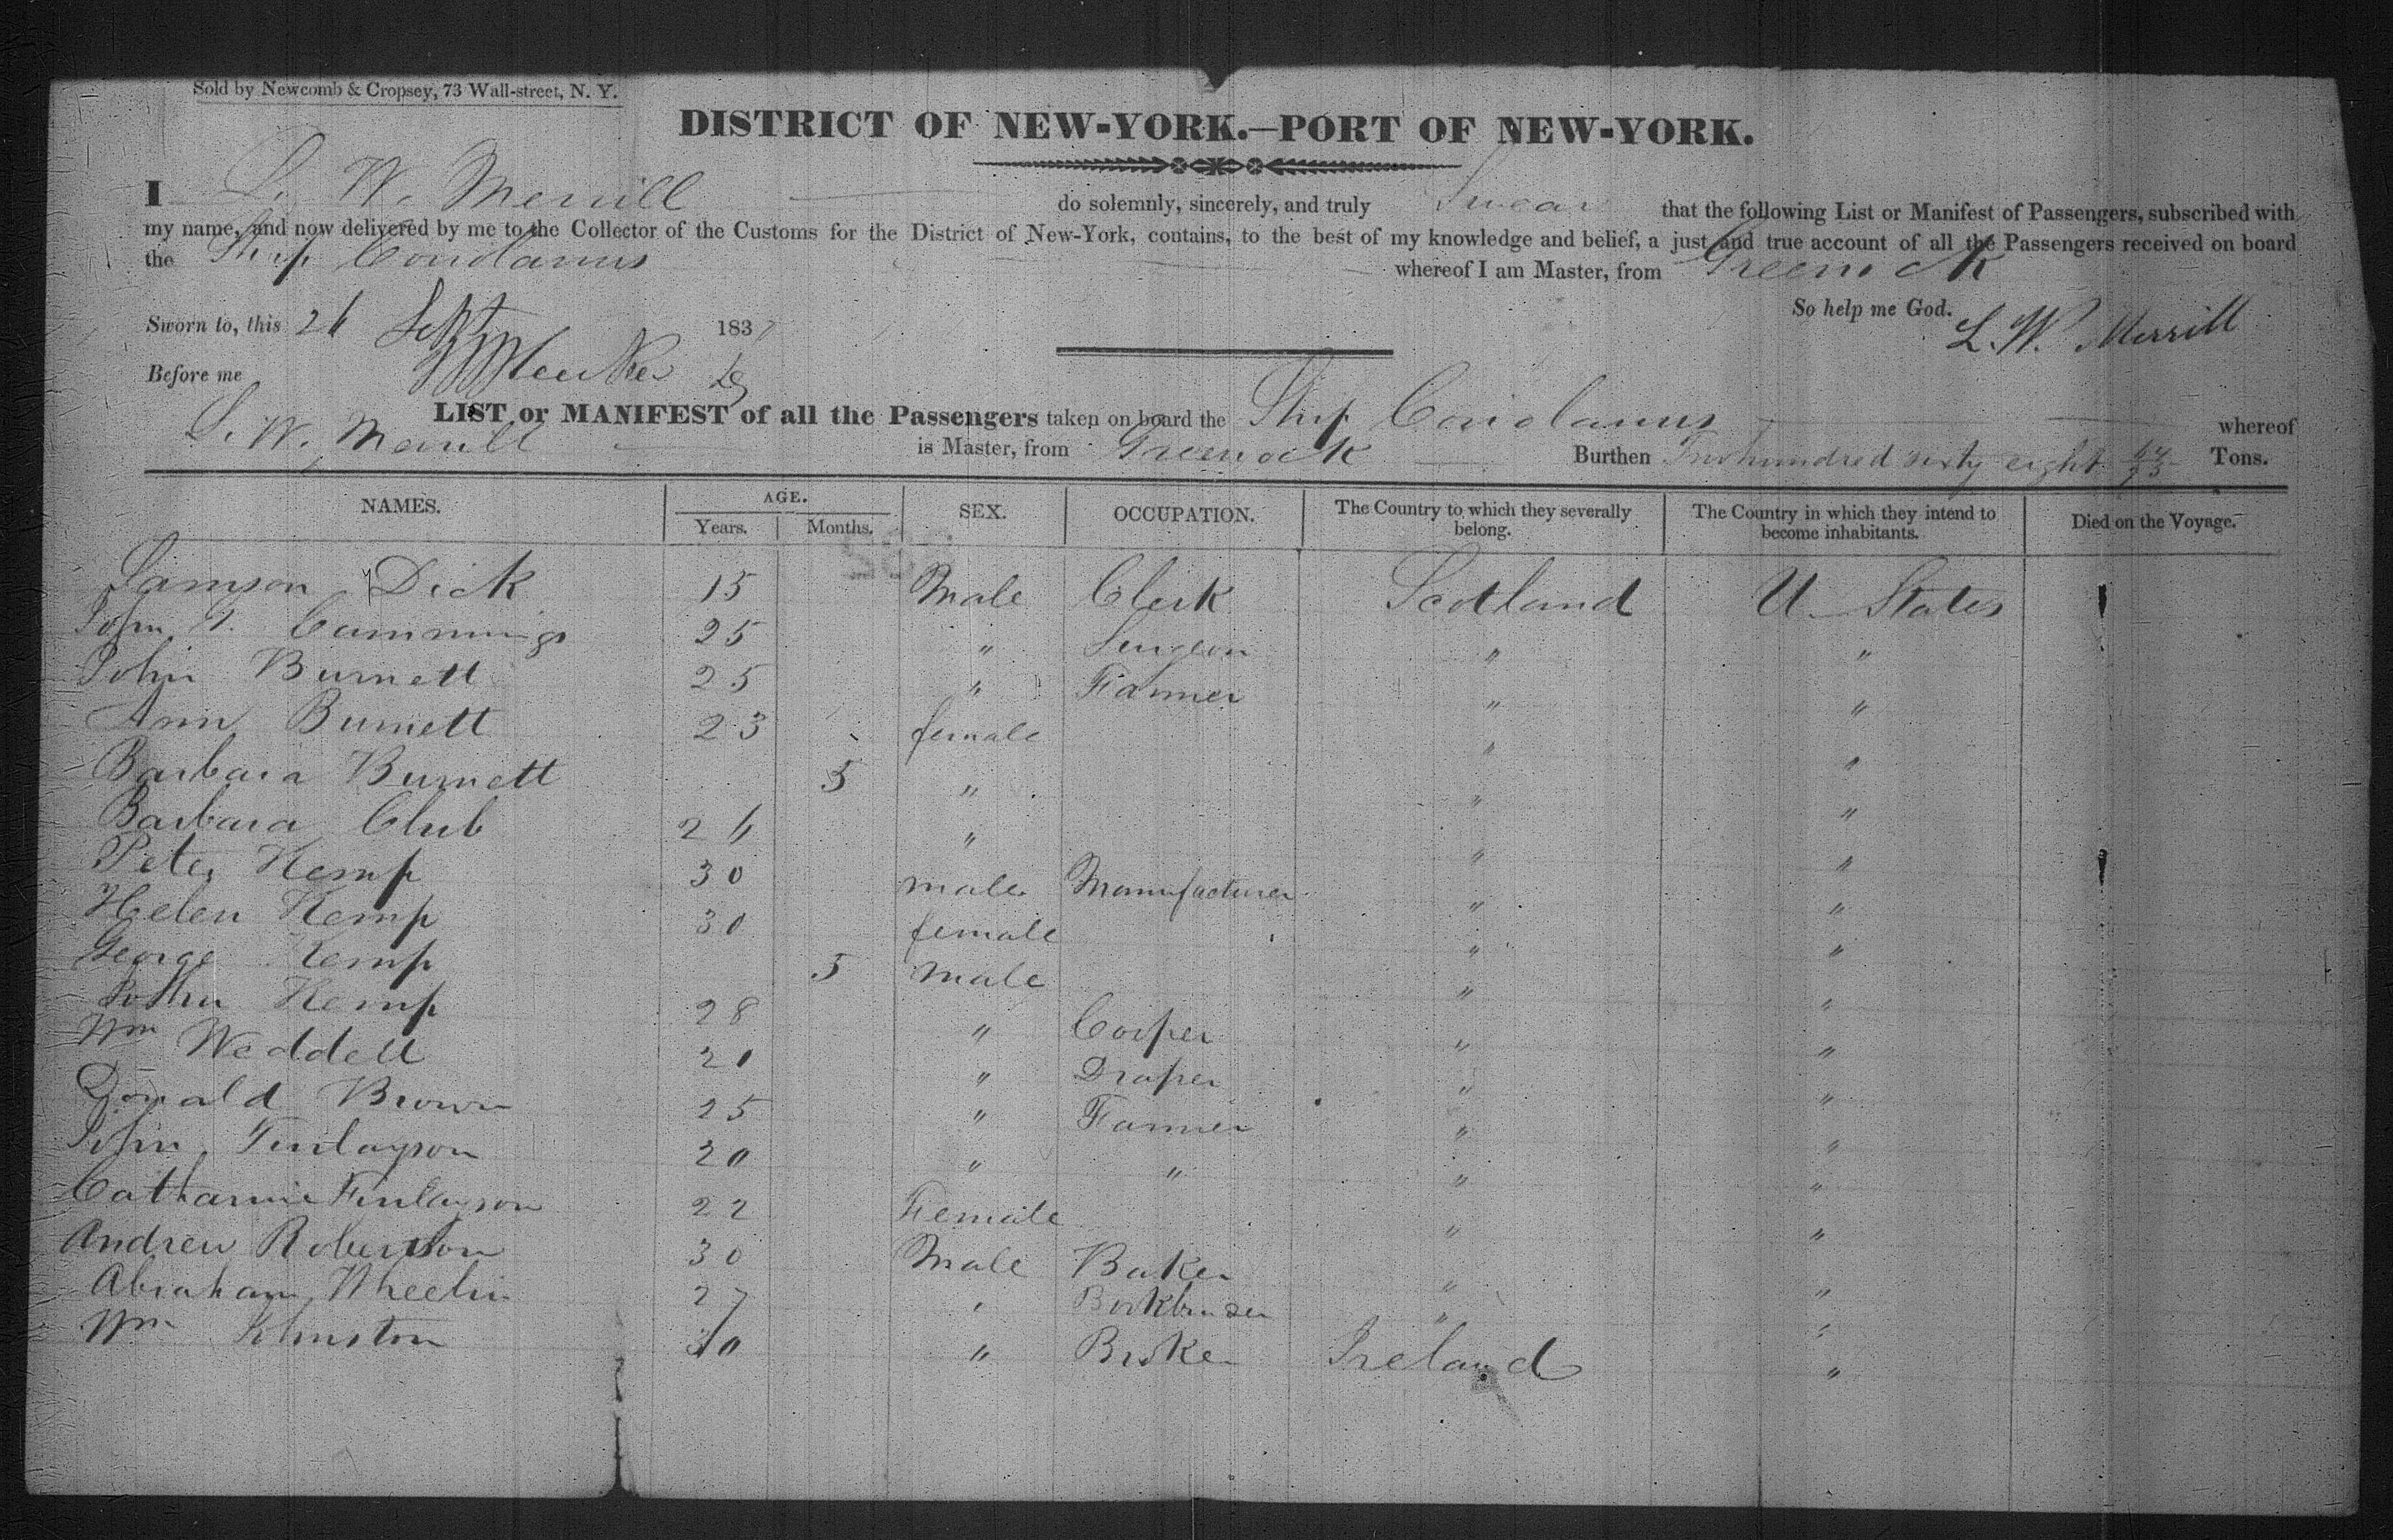 Sold by Newcomb & Cropsey, 73 Wall-street, N. Y.
DISTRICT OF NEW-YORK.—PORT OF NEW-YORK.
I L. W. Merrill do solemnly, sincerely, and truly Swear that the following List or Manifest of Passengers, subscribed with
my name, and now delivered by me to the Collector of the Customs for the District of New-York, contains, to the best of my knowledge and belief, a just and true account of all the Passengers received on board
the Ship Coriolanus whereof I am Master, from Greenock
So help me God. L. W. Merrill
Sworn to, this 26 Sept 1837
Before me
LIST or MANIFEST of all the Passengers taken on board the Ship Coriolanus whereof
L. W. Merrill is Master, from Greenock Burthen Two hundred sixty eight Tons.
NAMES. AGE. Years. Months. SEX. OCCUPATION. The Country to which they severally belong. The Country in which they intend to become inhabitants. Died on the Voyage.
Dick 15 Male Clerk Scotland U States
John T. Cummings 25 " Surgeon " "
John Burnett 25 " Farmer " "
Ann Burnett 23 female " "
Barbara Burnett 5 " " "
Barbara Club 26 " " "
Peter Kemp 30 male Manufacturer " "
Helen Kemp 30 female " "
George Kemp 5 male " "
John Kemp 28 " Cooper " "
Wm Weddell 20 " Draper " "
Donald Brown 25 " Farmer " "
John Finlayson 20 " " " "
Catharine Finlayson 22 Female " "
Andrew Robertson 30 Male Baker " "
Abraham 27 " Bookbinder " "
Wm Johnston 30 " Broker Ireland "